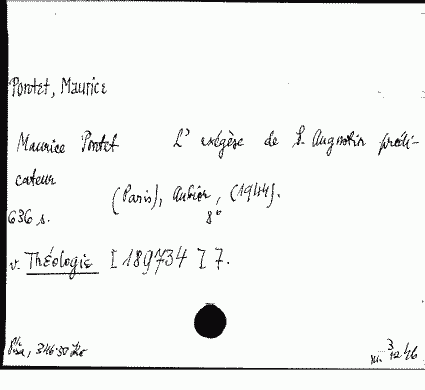 Pontet, Maurice
Maurice Pontet L'exégèse de S. Augustin prédi-
cateur
(Paris), Aubier, (1944).
636 s. 8°
v. Théologie [189734] 7.